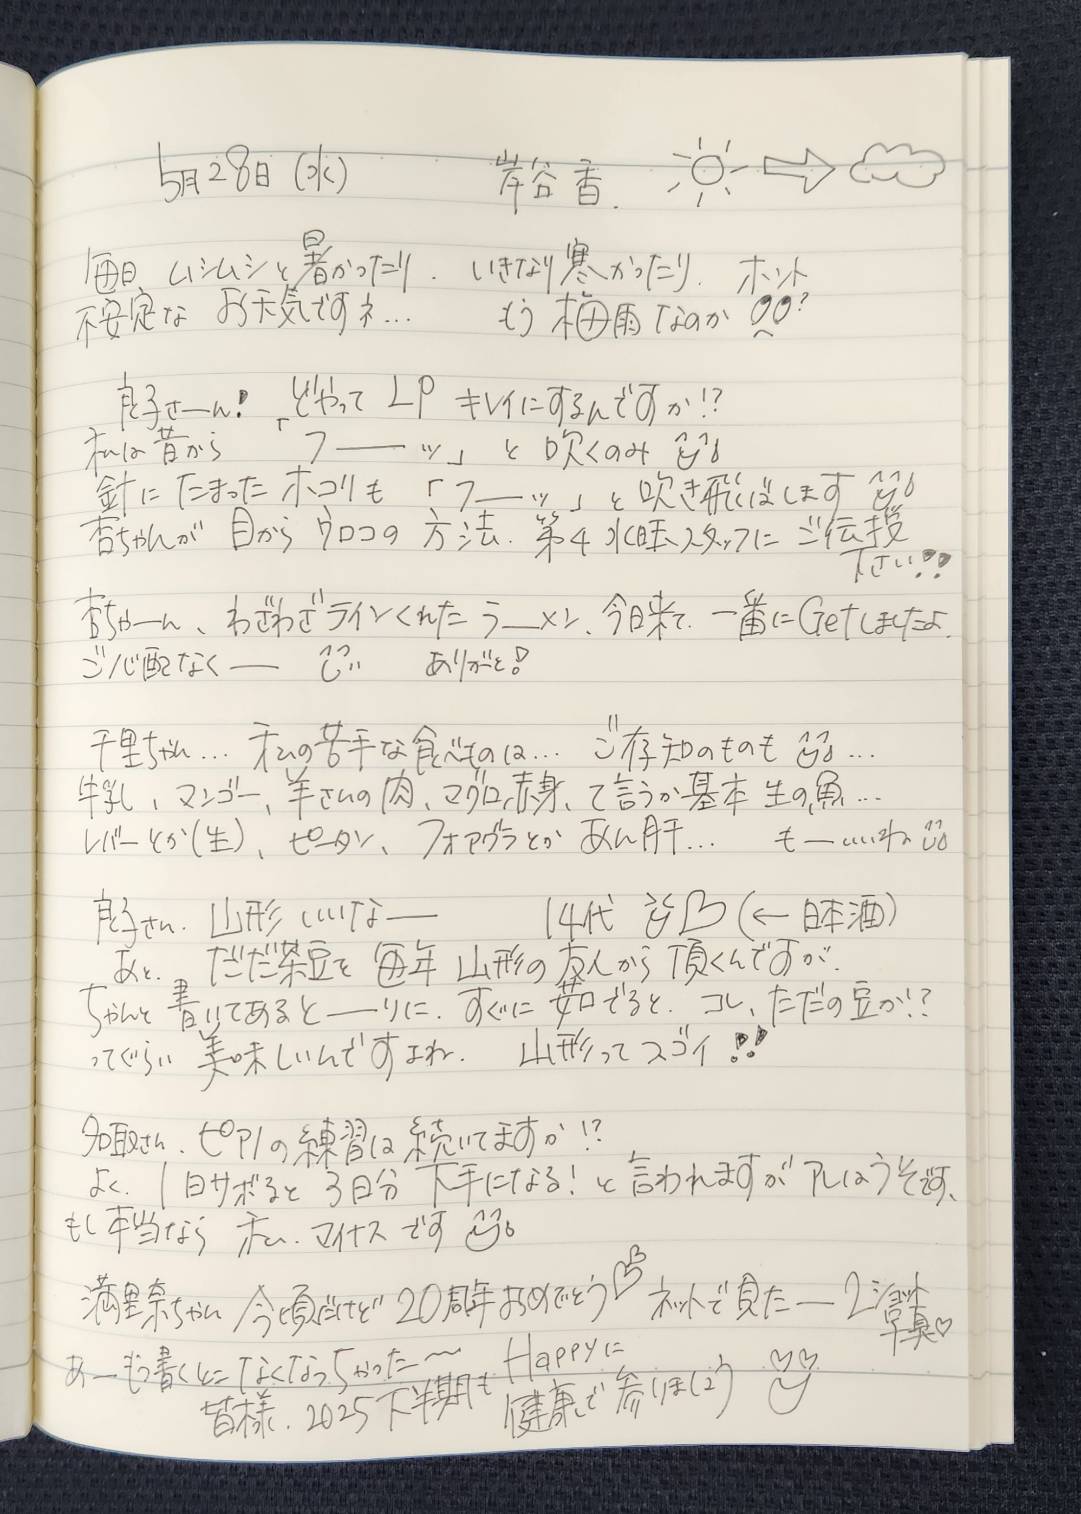 5月28日(水) 岸谷香.
毎日、ムシムシと暑かったり. いきなり寒かったり. ホント
不安定なお天気ですネ... もう梅雨なのか?
良子さーん! どやってLPキレイにするんですか!?
私は昔から「フーーッ」と吹くのみ
針にたまったホコリも「フーーッ」と吹き飛ばします
杏ちゃんが目からウロコの方法. 第4水曜スタッフにご伝授
下さい!!
杏ちゃーん、わざわざラインくれたラーメン、今日来て、一番にGetしましたよ.
ご心配なくー ありがと!
千里ちゃん... 私の苦手な食べものは... ご存知のものも...
牛乳、マンゴー、羊さんの肉、マグロ赤身、て言うか基本生の魚...
レバーとか(生)、ピータン、フォアグラとかあん肝... もーいいわ
良子さん. 山形いいなー 14代 (←日本酒)
あと. だだ茶豆を毎年山形の友人から頂くんですが.
ちゃんと書いてあるとーりに. すぐに茹でると. コレ、ただの豆か!?
ってぐらい美味しいんですよね. 山形ってスゴイ!!
名取さん. ピアノの練習は続いてますか!?
よく. 1日サボると3日分下手になる!と言われますがアレはうそです、
もし本当なら私. マイナスです
満里奈ちゃん 今頃だけど20周年おめでとう ネットで見たー2ショット
写真♡
あーもう書くとこなくなっちゃった〜 Happyに
皆様. 2025下半期も健康で参りましょう